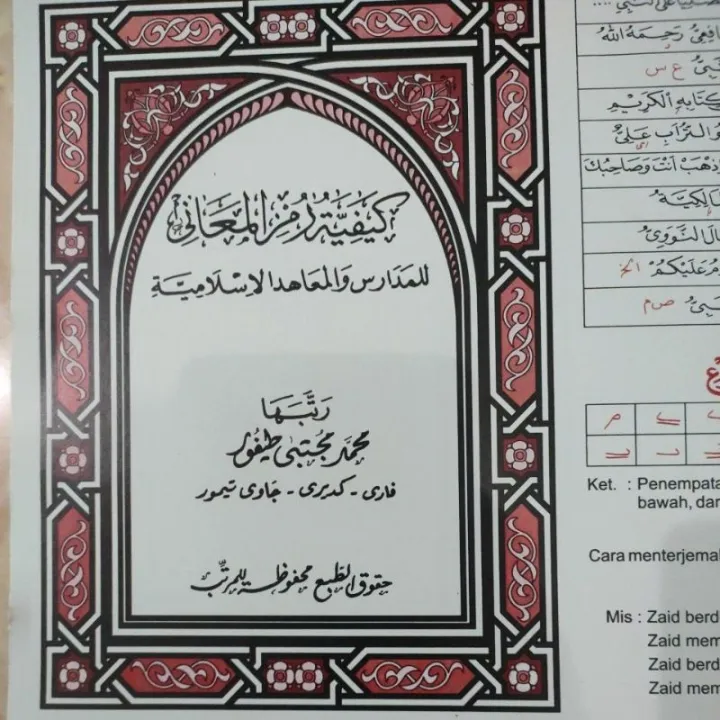 كَيْفِيَّةُ رُمُزِ الْمَعَانِي
للمَدَارِس وَالمَعَاهد الإسْلَامِيَّة
رَتَّبَهَا
محمد مجتبى طيفور
فاری - كديری - جاوی تيمور
حقوق الطبع محفوظة للمرتب
افِعِيُّ رَحِمَهُ اللهُ
ع س
كِتَابِهِ الْكَرِيْمِ
التُّرَابِ عَلِيُّ
ذْهَبْ اَنْتَ وَصَاحِبُكَ
الِكِيَّةُ
الَ النَّوَوِيُّ
مُ عَلَيْكُمْ الخ
بِيُّ ص م
Ket. : Penempata
bawah, dan
Cara menterjemal
Mis : Zaid berd
Zaid mem
Zaid berd
Zaid mem